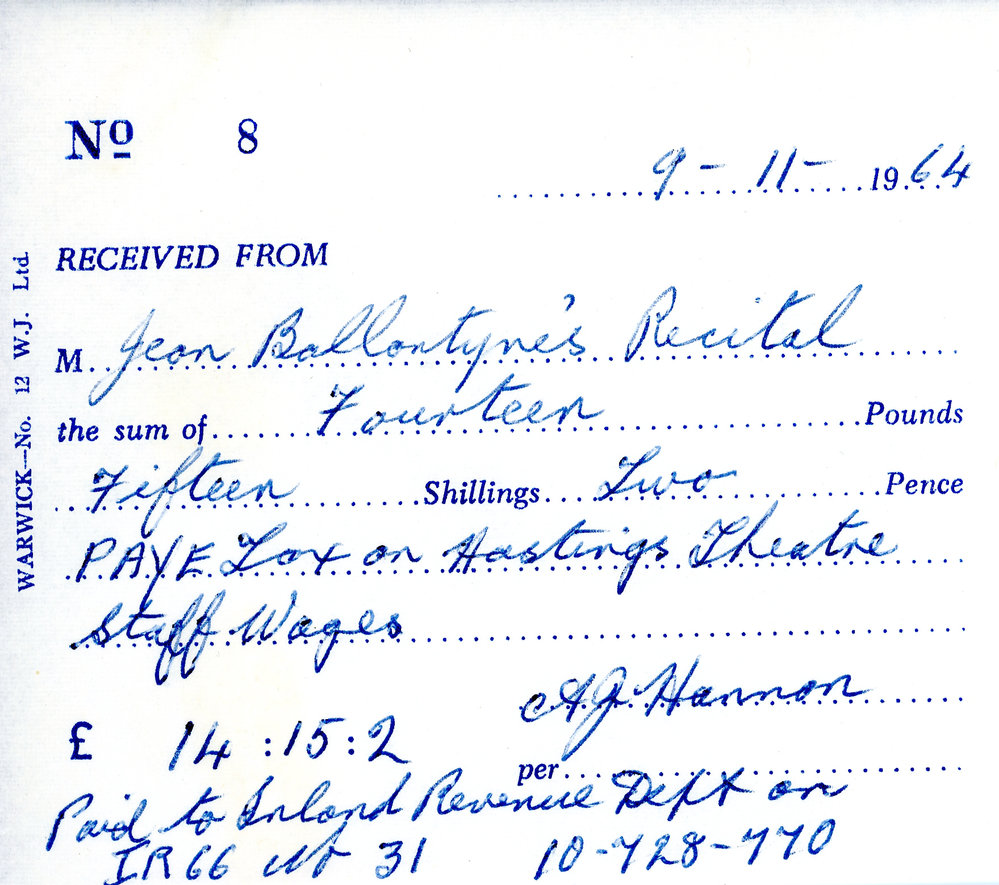 No 8
9 - 11 - 1964
RECEIVED FROM
M Jean Ballantyne's Recital
the sum of Fourteen Pounds
Fifteen Shillings Two Pence
PAYE Tax on Hastings Theatre
Staff Wages
AJ Hannon
£ 14 : 15 : 2
per
Paid to Inland Revenue Dept on
IR66 No 31 10-728-770
WARWICK—No. 12 W.J. Ltd.